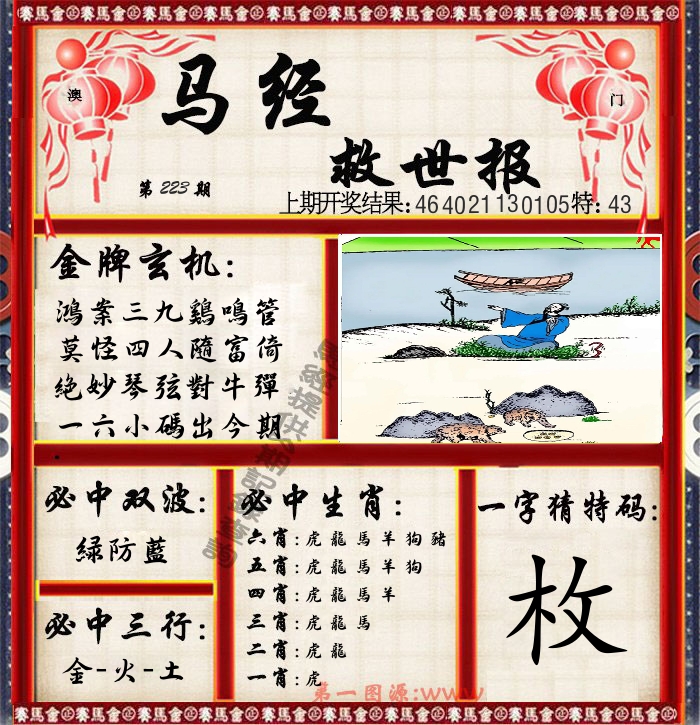 賽馬會 賽馬會 賽馬會 賽馬會 賽馬會 賽馬會 賽馬會 賽馬會
澳
门
马经
救世报
第 223 期
上期开奖结果:464021130105特:43
金牌玄机:
鴻案三九鷄鳴管
莫怪四人隨富倚
絶妙琴弦對牛彈
一六小碼出今期
必中双波:
緑防藍
必中三行:
金-火-土
必中生肖:
六肖:虎龍馬羊狗豬
五肖:虎龍馬羊狗
四肖:虎龍馬羊
三肖:虎龍馬
二肖:虎龍
一肖:虎
一字猜特码:
枚
第一图源:www